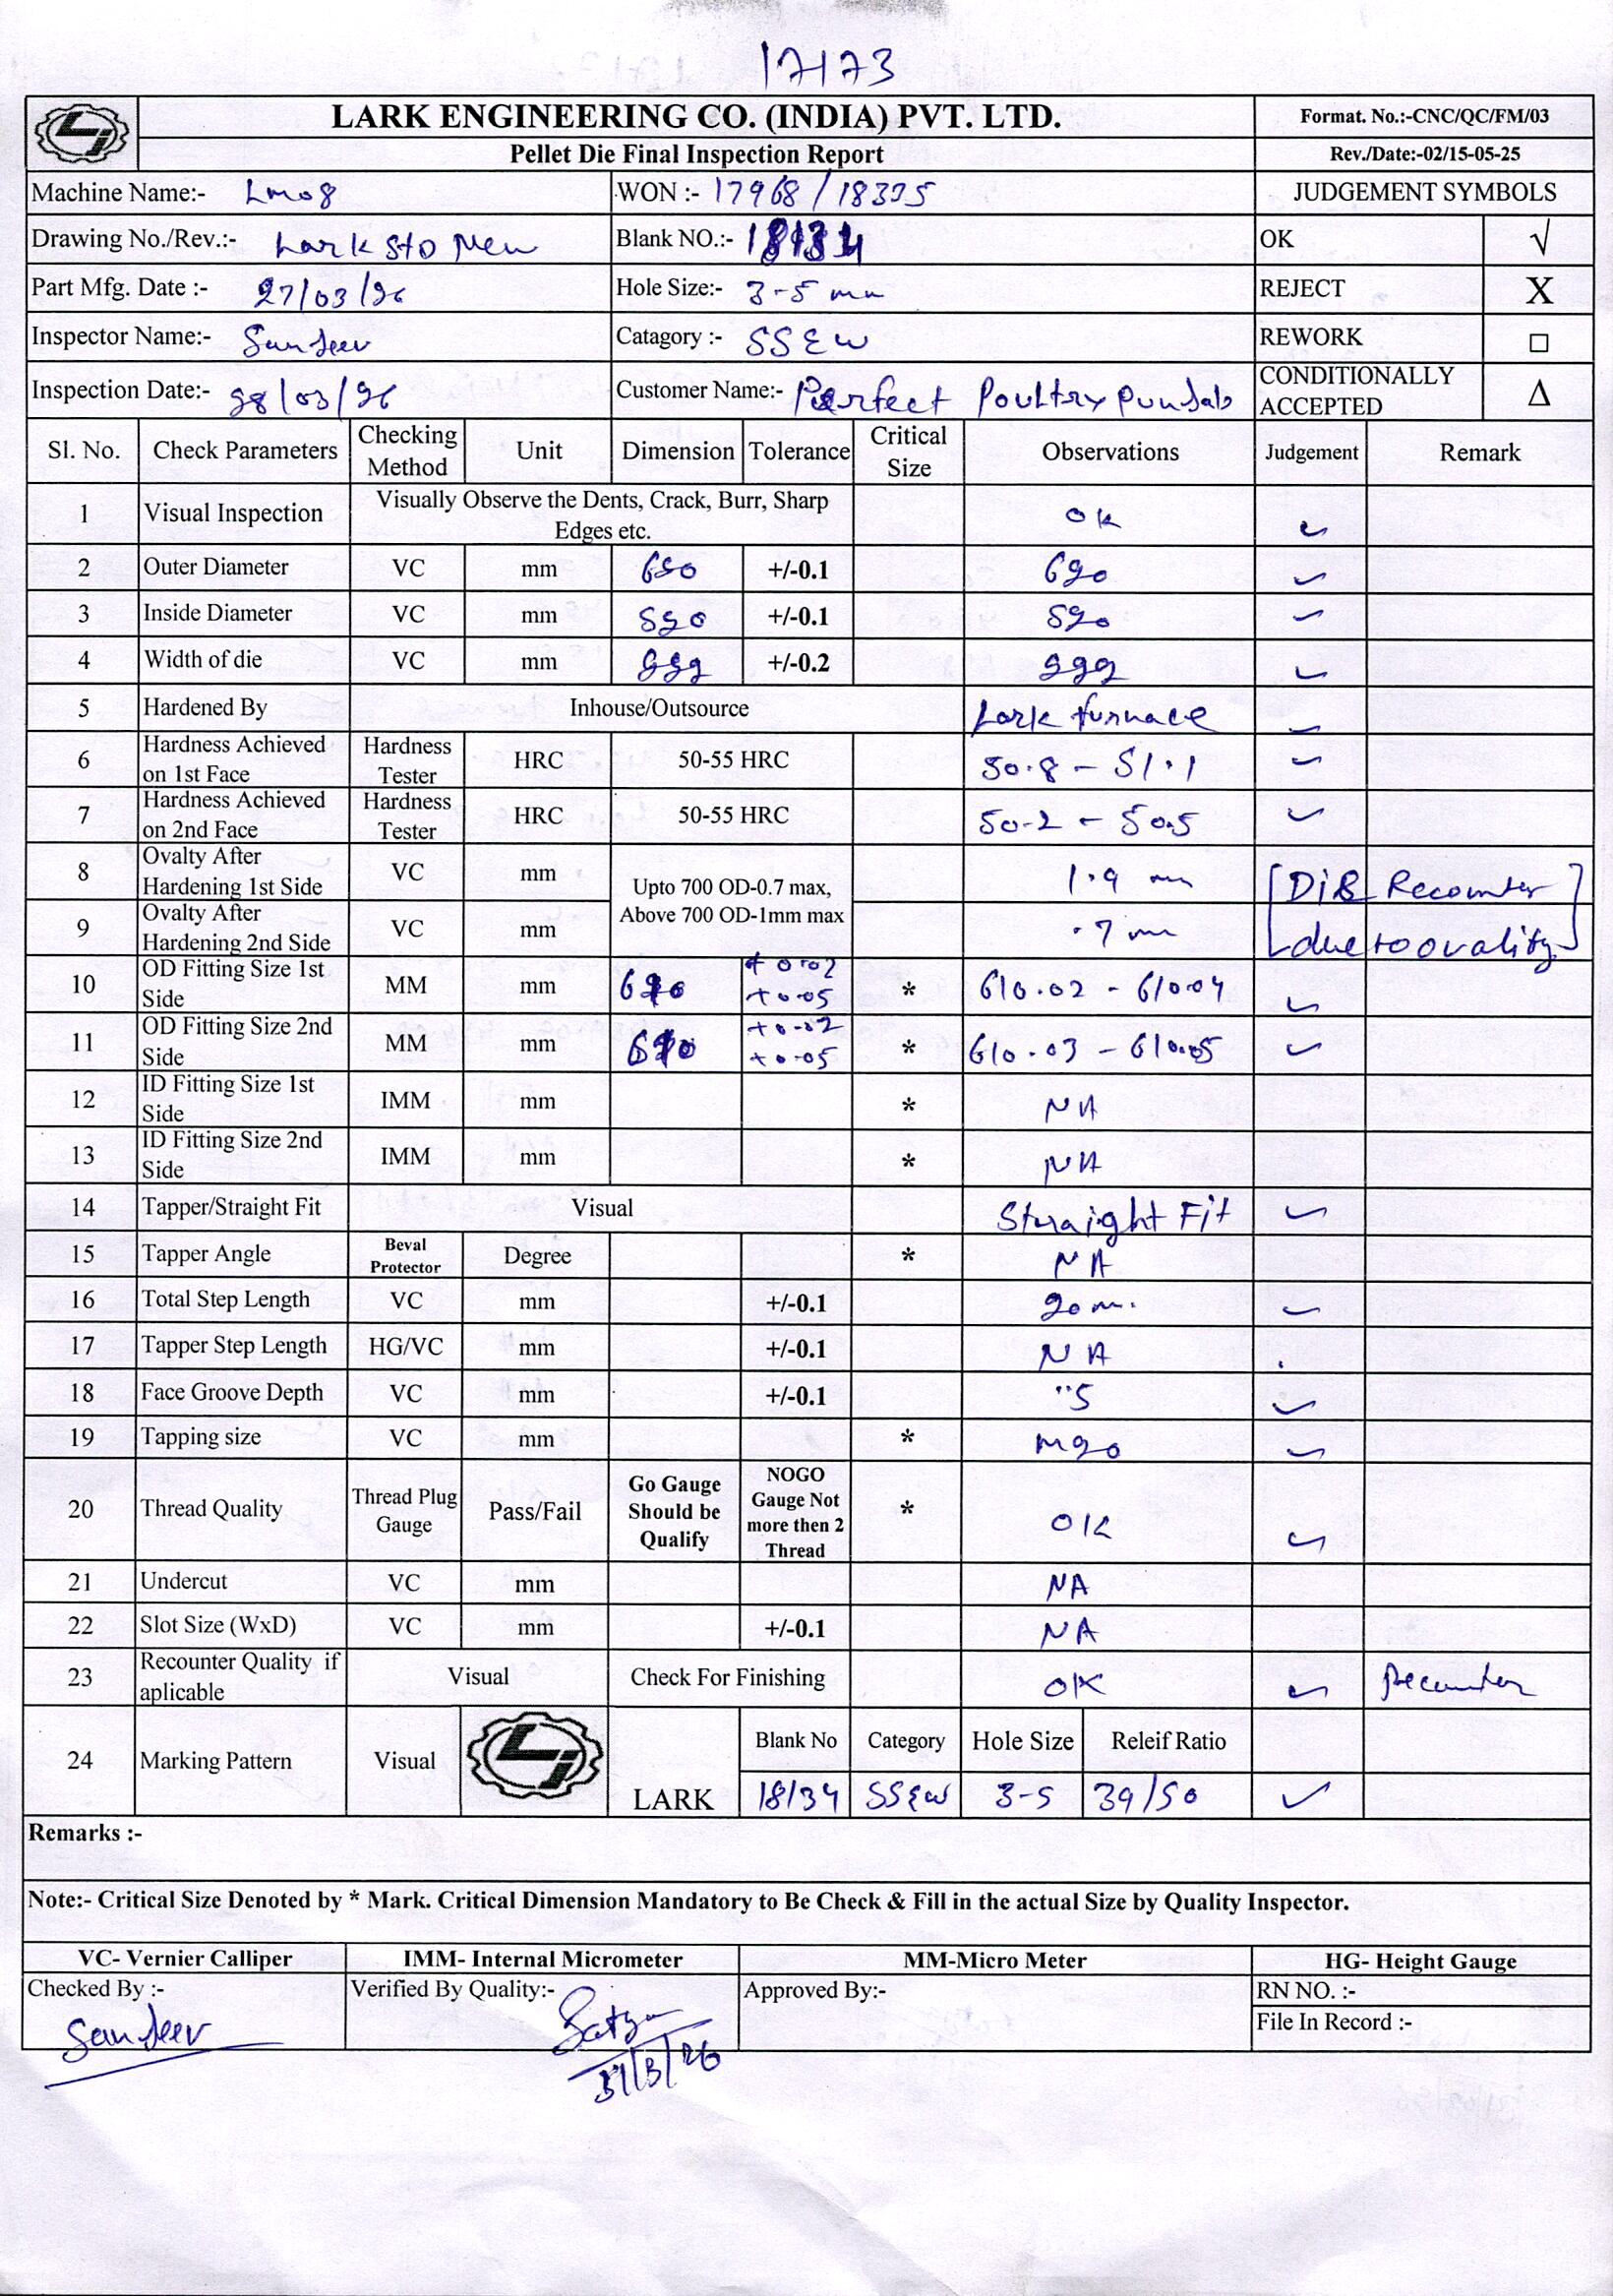 17173
LARK ENGINEERING CO. (INDIA) PVT. LTD.
Format. No.:-CNC/QC/FM/03
Pellet Die Final Inspection Report
Rev./Date:-02/15-05-25
Machine Name:- Lm08
WON :- 17968/18335
JUDGEMENT SYMBOLS
Drawing No./Rev.:- Lark StD New
Blank NO.:- 18134
OK √
Part Mfg. Date :- 27/03/26
Hole Size:- 3-5 mm
REJECT X
Inspector Name:- Sanjeev
Catagory :- SSEW
REWORK □
Inspection Date:- 28/03/26
Customer Name:- Perfect Poultry Punjab
CONDITIONALLY ACCEPTED Δ
Sl. No. Check Parameters Checking Method Unit Dimension Tolerance Critical Size Observations Judgement Remark
1 Visual Inspection Visually Observe the Dents, Crack, Burr, Sharp Edges etc. OK ✓
2 Outer Diameter VC mm +/-0.1 620 ✓
3 Inside Diameter VC mm 520 +/-0.1 520 ✓
4 Width of die VC mm 222 +/-0.2 222 ✓
5 Hardened By Inhouse/Outsource Lark furnace ✓
6 Hardness Achieved on 1st Face Hardness Tester HRC 50-55 HRC 50.8 - 51.1 ✓
7 Hardness Achieved on 2nd Face Hardness Tester HRC 50-55 HRC 50.2 - 50.5 ✓
8 Ovalty After Hardening 1st Side VC mm Upto 700 OD-0.7 max, Above 700 OD-1mm max 1.9 mm [Die Recounter
9 Ovalty After Hardening 2nd Side VC mm .7 mm due to ovality]
10 OD Fitting Size 1st Side MM mm 610 +0.02 +0.05 * 610.02 - 610.04 ✓
11 OD Fitting Size 2nd Side MM mm 610 +0.02 +0.05 * 610.03 - 610.05 ✓
12 ID Fitting Size 1st Side IMM mm * NA
13 ID Fitting Size 2nd Side IMM mm * NA
14 Tapper/Straight Fit Visual Straight Fit ✓
15 Tapper Angle Beval Protector Degree * NA
16 Total Step Length VC mm +/-0.1 20 m. ✓
17 Tapper Step Length HG/VC mm +/-0.1 NA
18 Face Groove Depth VC mm +/-0.1 5 ✓
19 Tapping size VC mm * M20 ✓
20 Thread Quality Thread Plug Gauge Pass/Fail Go Gauge Should be Qualify NOGO Gauge Not more then 2 Thread * OK ✓
21 Undercut VC mm NA
22 Slot Size (WxD) VC mm +/-0.1 NA
23 Recounter Quality if aplicable Visual Check For Finishing OK ✓ Recounter
24 Marking Pattern Visual LARK Blank No Category Hole Size Releif Ratio
18134 SSEW 3-5 39/50 ✓
Remarks :-
Note:- Critical Size Denoted by * Mark. Critical Dimension Mandatory to Be Check & Fill in the actual Size by Quality Inspector.
VC- Vernier Calliper IMM- Internal Micrometer MM-Micro Meter HG- Height Gauge
Checked By :- Sanjeev
Verified By Quality:- Satya
31/3/26
Approved By:-
RN NO. :-
File In Record :-